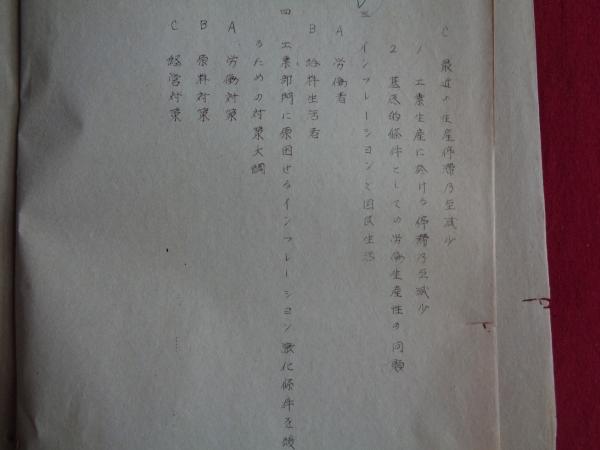 C 最近の生産停滞乃至減少
1 工業生産に於ける停滞乃至減少
2 基底的條件としての労働生産性の問題
三 インフレーションと国民生活
A 労働者
B 給料生活者
四 工業部門に原因せるインフレーション悪化條件を
るための対策大綱
A 労働対策
B 原料対策
C 経営対策